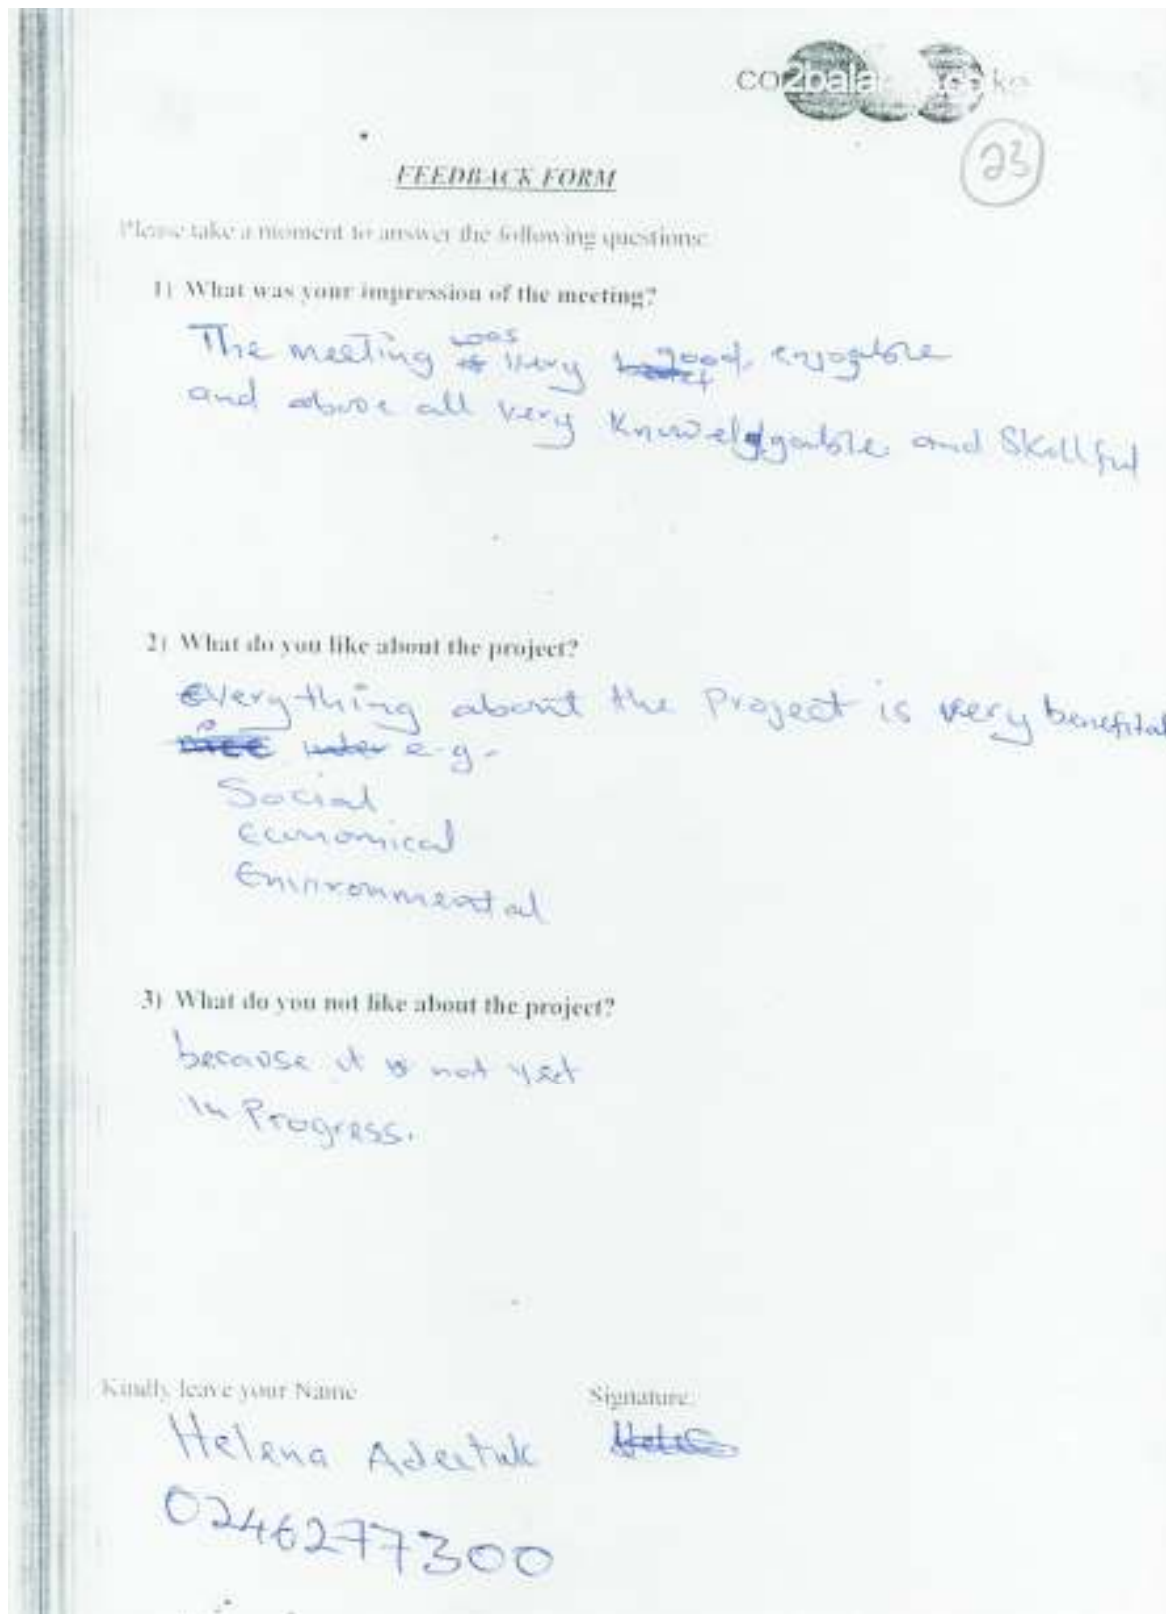 co2bala
23
FEEDBACK FORM
Please take a moment to answer the following questions:
1) What was your impression of the meeting?
The meeting was very good, enjoyable
and above all very knoweldgeable and Skillful
2) What do you like about the project?
Everything about the Project is very benefital
e.g.
Social
Economical
Environmental
3) What do you not like about the project?
because it is not yet
In Progress.
Kindly leave your Name
Signature
Helena
0246277300